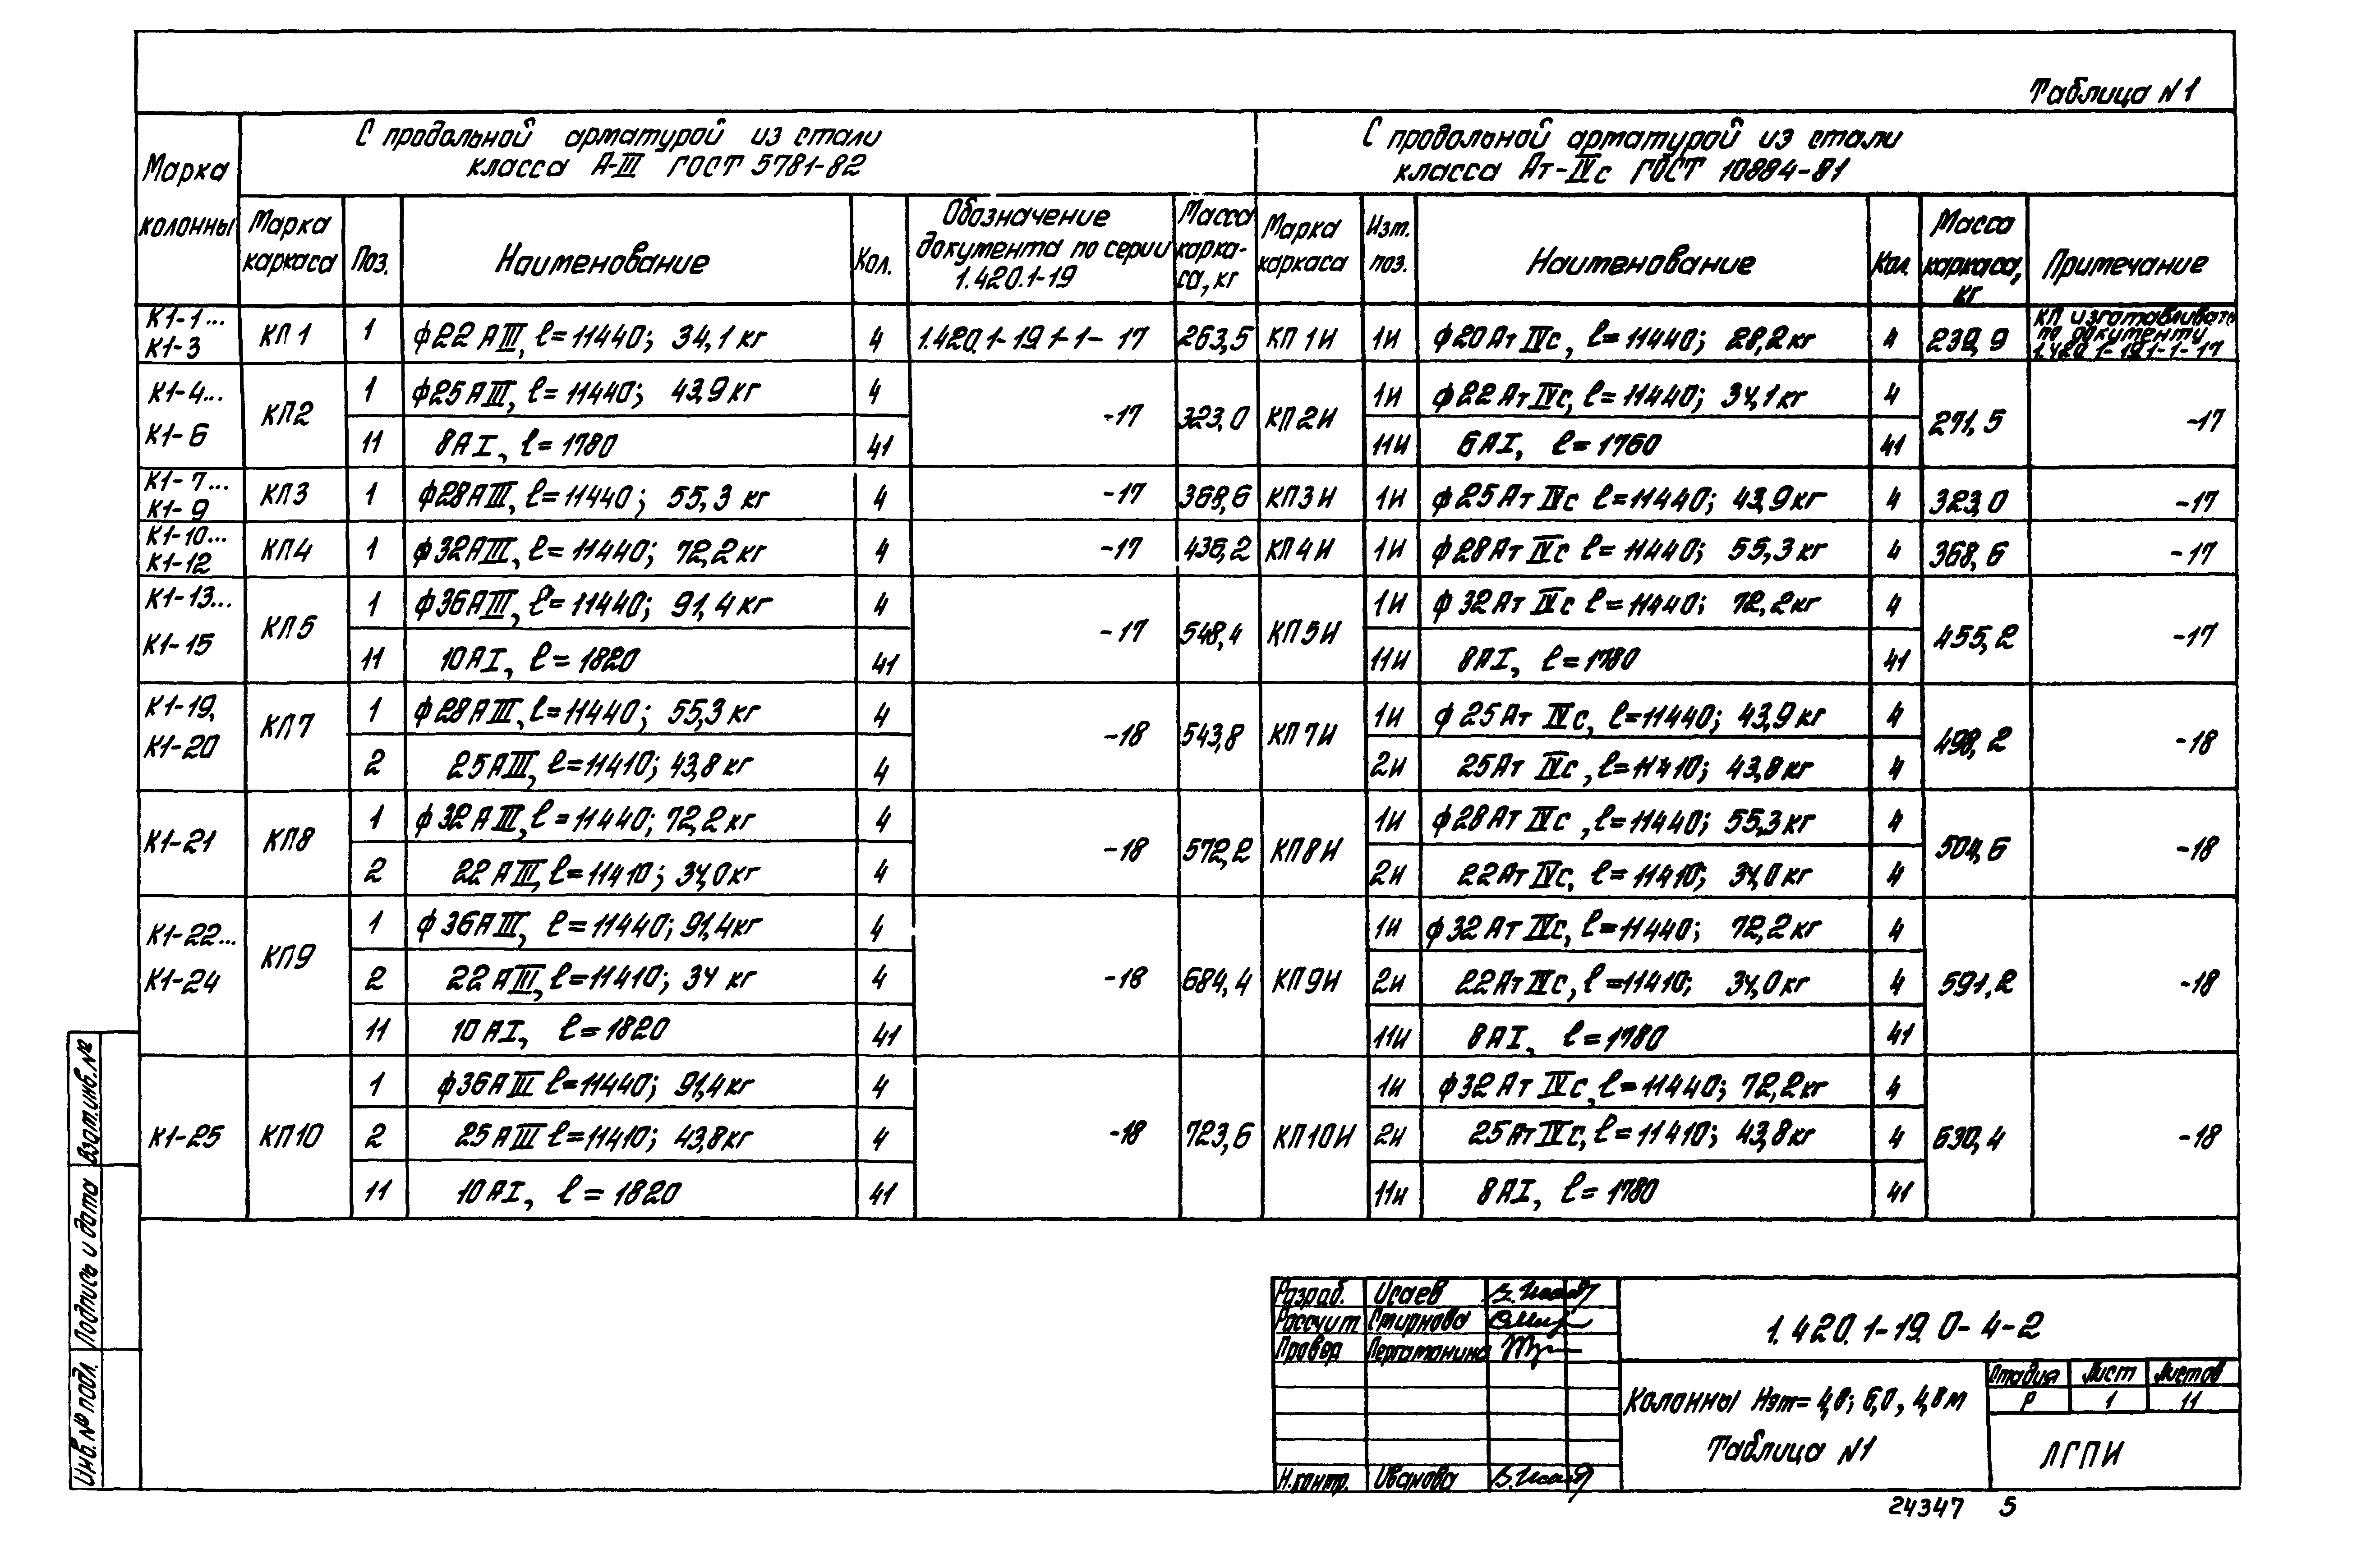 Таблица N1
Марка колонны
С продольной арматурой из стали
класса А-III ГОСТ 5781-82
С продольной арматурой из стали
класса Ат-IVс ГОСТ 10884-81
Марка каркаса
Поз.
Наименование
Кол.
Обозначение документа по серии 1.420.1-19
Масса карка-са, кг
Марка каркаса
Изм. поз.
Наименование
Кол
Масса каркаса, кг
Примечание
К1-1... К1-3 КП1 1 ф22 АIII, l=11440; 34,1 кг 4 1.420.1-19 1-1-17 263,5 КП 1И 1И ф20Ат IVс, l=11440; 28,2кг 4 239,9 КП изготавливать по документу 1.420.1-19.1-1-17
К1-4... К1-6 КП2 1 ф25АIII, l=11440; 43,9кг 4 -17 323,0 КП2И 1И ф22Ат IVс, l=11440; 34,1кг 4 271,5 -17
11 8АI, l=1780 41 11И 6АI, l=1760 41
К1-7... К1-9 КП3 1 ф28АIII, l=11440; 55,3 кг 4 -17 368,6 КП3И 1И ф25Ат IVс l=11440; 43,9кг 4 323,0 -17
К1-10... К1-12 КП4 1 ф32АIII, l=11440; 72,2кг 4 -17 436,2 КП4И 1И ф28Ат IVс l=11440; 55,3кг 4 368,6 -17
К1-13... К1-15 КП5 1 ф36АIII, l=11440; 91,4кг 4 -17 548,4 КП5И 1И ф32Ат IVс l=11440; 72,2кг 4 455,2 -17
11 10АI, l=1820 41 11И 8АI, l=1780 41
К1-19, К1-20 КП7 1 ф28АIII, l=11440; 55,3кг 4 -18 543,8 КП7И 1И ф25Ат IVс, l=11440; 43,9кг 4 498,2 -18
2 25АIII, l=11410; 43,8кг 4 2И 25Ат IVс, l=11410; 43,8кг 4
К1-21 КП8 1 ф32АIII, l=11440; 72,2кг 4 -18 572,2 КП8И 1И ф28Ат IVс, l=11440; 55,3кг 4 504,6 -18
2 22АIII, l=11410; 34,0кг 4 2И 22Ат IVс, l=11410; 34,0кг 4
К1-22... К1-24 КП9 1 ф36АIII, l=11440; 91,4кг 4 -18 684,4 КП9И 1И ф32Ат IVс, l=11440; 72,2кг 4 591,2 -18
2 22АIII, l=11410; 34 кг 4 2И 22Ат IVс, l=11410; 34,0кг 4
11 10АI, l=1820 41 11И 8АI, l=1780 41
К1-25 КП10 1 ф36АIII l=11440; 91,4кг 4 -18 723,6 КП10И 1И ф32Ат IVс, l=11440; 72,2кг 4 630,4 -18
2 25АIII l=11410; 43,8кг 4 2И 25Ат IVс, l=11410; 43,8кг 4
11 10АI, l=1820 41 11И 8АI, l=1780 41
Взам.инв.№
Подпись и дата
Инв.№ подл.
Разраб. Исаев
Рассчит Смирнова
Провер Пергаменина
Н.контр. Иванова
1.420.1-19.0-4-2
Колонны Нэт=4,8; 6,0, 4,8м
Таблица N1
Стадия Лист Листов
Р 1 11
ЛГПИ
24347 5